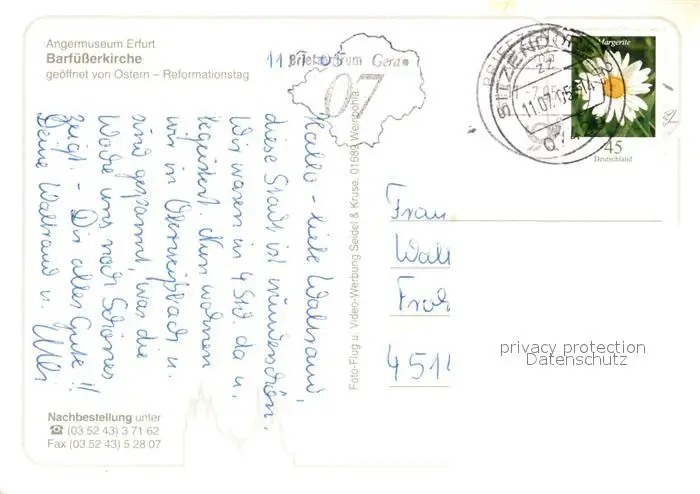 Angermuseum Erfurt
Barfüßerkirche
geöffnet von Ostern – Reformationstag
Hallo - liebe Waltraud,
diese Stadt ist wunderschön.
Wir waren in 4 Std. da u.
begeistert. Nun wohnen
wir in Oberweißbach u.
sind gespannt, was die
Woche uns noch Schönes
zeigt. - Dir alles Gute!!
Deine Waltraud u. Ulli
Nachbestellung unter
☎ (03 52 43) 3 71 62
Fax (03 52 43) 5 28 07
Foto-Flug u. Video-Werbung Seidel & Kruse, 01689 Weinböhla
Briefzentrum Gera
07
SITZENDORF
11.07.05-14
07429
Margerite
45
Deutschland
Frau
Walt
Froh
451
privacy protection
Datenschutz